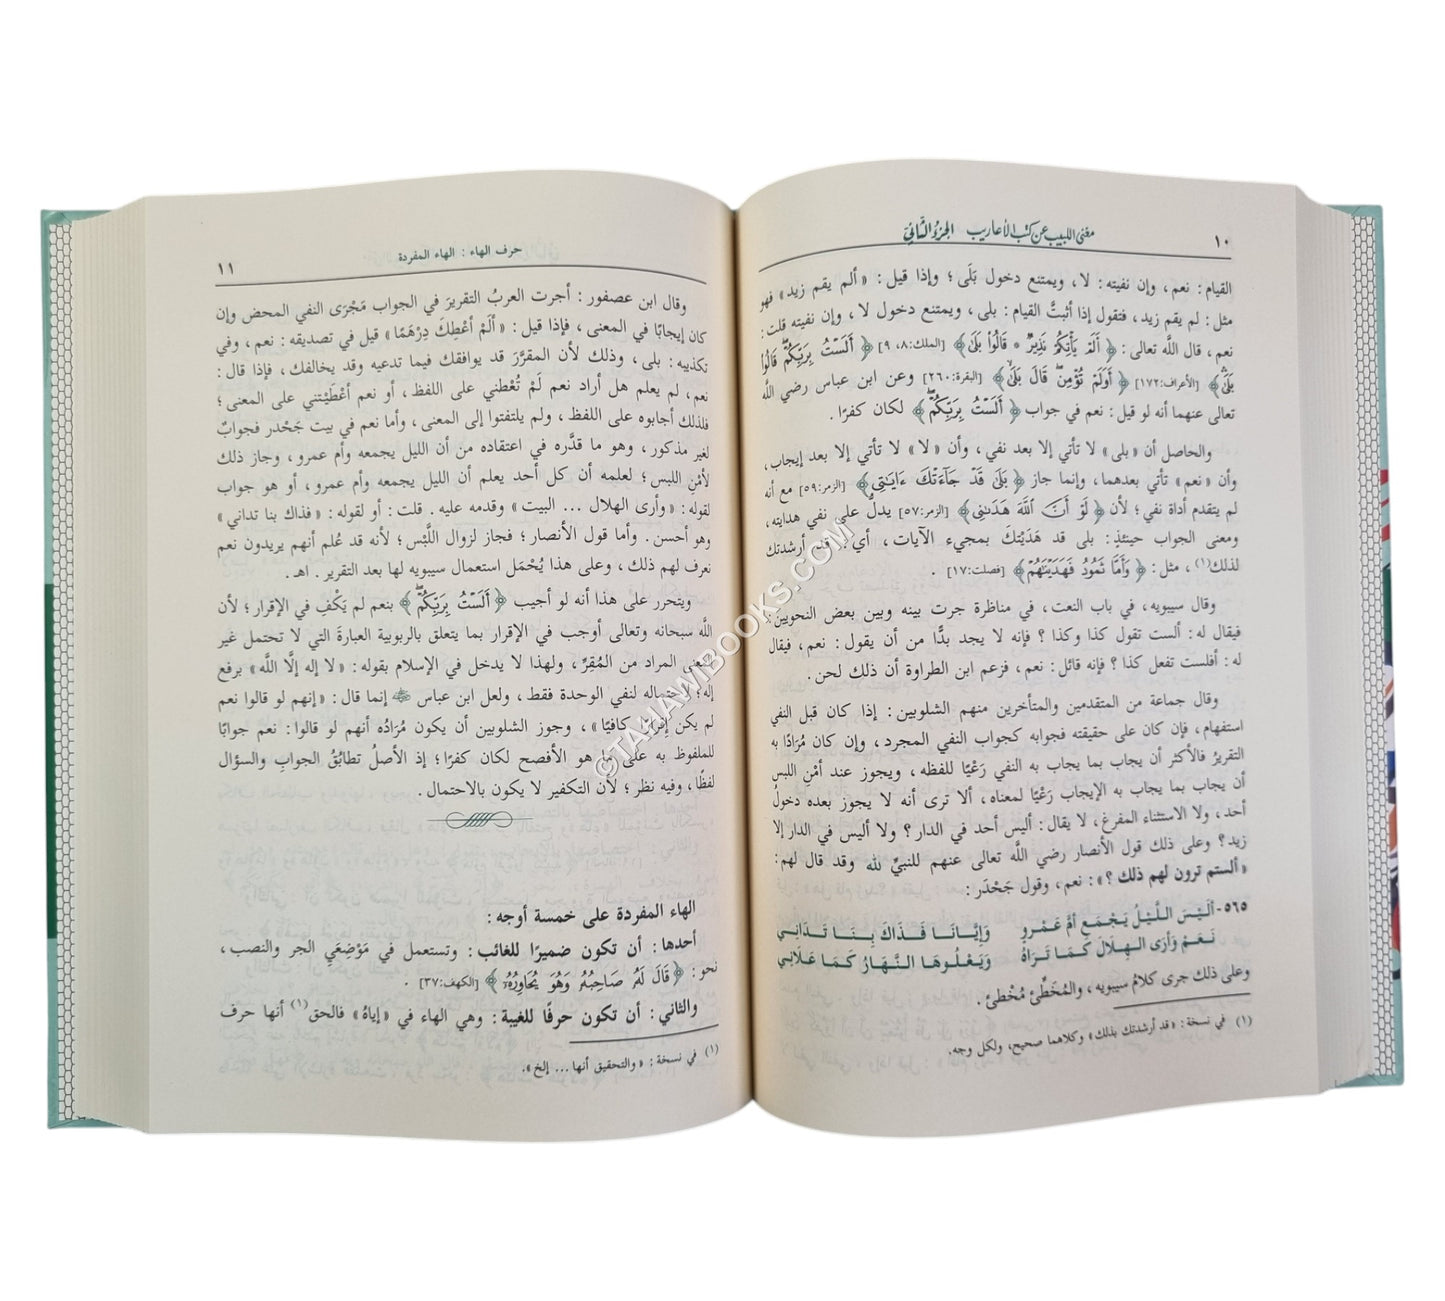 ١٠
مغني اللبيب عن كتب الأعاريب الجزء الثاني
القيام : نعم ، وإن نفيته : لا ، ويمتنع دخول بَلَى ؛ وإذا قيل : «ألم يقم زيد» فهو
مثل : لم يقم زيد، فتقول إذا أثبتَّ القيام : بلى ، ويمتنع دخول لا ، وإن نفيته قلت :
نعم ، قال اللَّه تعالى : ﴿ أَلَمْ يَأْتِكُمْ نَذِيرٌ * قَالُوا بَلَىٰ ﴾ [الملك:٨، ٩] ﴿ أَلَسْتُ بِرَبِّكُمْ قَالُوا
بَلَىٰ ﴾ [الأعراف:١٧٢] ﴿ أَوَلَمْ تُؤْمِن قَالَ بَلَىٰ ﴾ [البقرة:٢٦٠] وعن ابن عباس رضي اللَّه
تعالى عنهما أنه لو قيل : نعم في جواب ﴿ أَلَسْتُ بِرَبِّكُمْ ﴾ لكان كفرًا .
والحاصل أن «بلى» لا تأتي إلا بعد نفي ، وأن «لا» لا تأتي إلا بعد إيجاب ،
وأن «نعم» تأتي بعدهما، وإنما جاز ﴿ بَلَىٰ قَدْ جَاءَتْكَ ءَايَٰتِي ﴾ [الزمر:٥٩] مع أنه
لم يتقدم أداة نفي ؛ لأن ﴿ لَوْ أَنَّ ٱللَّهَ هَدَىٰنِي ﴾ [الزمر:٥٧] يدلُّ على نفي هدايته،
ومعنى الجواب حينئذٍ : بلى قد هَدَيْتك بمجيء الآيات ، أي : قد أرشدتك
لذلك(١) ، مثل : ﴿ وَأَمَّا ثَمُودُ فَهَدَيْنَٰهُمْ ﴾ [فصلت:١٧] .
وقال سيبويه، في باب النعت، في مناظرة جرت بينه وبين بعض النحويين:
فيقال له : ألست تقول كذا وكذا ؟ فإنه لا يجد بدًّا من أن يقول : نعم، فيقال
له : أفلست تفعل كذا ؟ فإنه قائل : نعم، فزعم ابن الطراوة أن ذلك لحن .
وقال جماعة من المتقدمين والمتأخرين منهم الشلوبين : إذا كان قبل النفي
استفهام، فإن كان على حقيقته فجوابه كجواب النفي المجرد ، وإن كان مُرَادًا به
التقريرُ فالأكثر أن يجاب بما يجاب به النفي رَعْيًا للفظه، ويجوز عند أمْنِ اللبس
أن يجاب بما يجاب به الإيجاب رَعْيًا لمعناه ، ألا ترى أنه لا يجوز بعده دخولُ
أحد، ولا الاستثناء المفرغ، لا يقال : أليس أحد في الدار ؟ ولا أليس في الدار إلا
زيد؟ وعلى ذلك قول الأنصار رضي اللَّه تعالى عنهم للنبيِّ ﷺ وقد قال لهم:
«ألستم ترون لهم ذلك ؟» : نعم، وقول جَحْدَر :
٥٦٥- أَلَيْسَ اللَّيْلُ يَجْمَعُ أُمَّ عَمْرٍو وَإِيَّانَا فَذَاكَ بِنَا تَدَانِي
نَعَمْ وَأَرَى الهِلَالَ كَمَا تَرَاهُ وَيَعْلُوهَا النَّهَارُ كَمَا عَلَانِي
وعلى ذلك جرى كلامُ سيبويه، والمُخَطِّئُ مُخْطئ .
(١) في نسخة : «قد أرشدتك بذلك» وكلاهما صحيح، ولكل وجه.
حرف الهاء : الهاء المفردة
١١
وقال ابن عصفور : أجرت العربُ التقريرَ في الجواب مَجْرَى النفي المحض وإن
كان إيجابًا في المعنى ، فإذا قيل : «ألَمْ أُعْطِكَ دِرْهَمًا» قيل في تصديقه : نعم ، وفي
تكذيبه : بلى، وذلك لأن المقرَّرَ قد يوافقك فيما تدعيه وقد يخالفك، فإذا قال :
نعم ، لم يعلم هل أراد نعم لَمْ تُعْطني على اللفظ، أو نعم أعْطَيْتني على المعنى ؛
فلذلك أجابوه على اللفظ ، ولم يلتفتوا إلى المعنى، وأما نعم في بيت جَحْدر فجوابٌ
لغير مذكور، وهو ما قدَّره في اعتقاده من أن الليل يجمعه وأم عمرو، وجاز ذلك
لأمْنِ اللبس ؛ لعلمه أن كل أحد يعلم أن الليل يجمعه وأم عمرو، أو هو جواب
لقوله : «وأرى الهلال ... البيت» وقدمه عليه . قلت : أو لقوله : «فذاك بنا تداني»
وهو أحسن . وأما قول الأنصار ؛ فجاز لزوال اللَّبْس ؛ لأنه قد عُلم أنهم يريدون نعم
نعرف لهم ذلك ، وعلى هذا يُحْمَل استعمال سيبويه لها بعد التقرير . اهـ .
ويتحرر على هذا أنه لو أجيب ﴿ أَلَسْتُ بِرَبِّكُمْ ﴾ بنعم لم يَكْفِ في الإقرار ؛ لأن
اللَّه سبحانه وتعالى أوجب في الإقرار بما يتعلق بالربوبية العبارةَ التي لا تحتمل غير
المعنى المراد من المُقِرِّ ، ولهذا لا يدخل في الإسلام بقوله : «لا إله إلَّا اللَّه» برفع
إله؛ لاحتماله لنفي الوحدة فقط ، ولعل ابن عباس إنما قال : «إنهم لو قالوا نعم
لم يكن إقرارًا كافيًا»، وجوز الشلوبين أن يكون مُرَادُه أنهم لو قالوا : نعم جوابًا
للملفوظ به على ما هو الأفصح لكان كفرًا ؛ إذ الأصلُ تطابُقُ الجوابِ والسؤال
لفظًا، وفيه نظر ؛ لأن التكفير لا يكون بالاحتمال .
الهاء المفردة على خمسة أوجه :
أحدها : أن تكون ضميرًا للغائب : وتستعمل في مَوْضِعَي الجر والنصب ،
نحو : ﴿ قَالَ لَهُ صَاحِبُهُ وَهُوَ يُحَاوِرُهُ ﴾ [الكهف:٣٧] .
والثاني : أن تكون حرفًا للغيبة : وهي الهاء في «إياهُ» فالحق(١) أنها حرف
(١) في نسخة : «والتحقيق أنها ... إلخ».
©TAHAWIBOOKS.COM